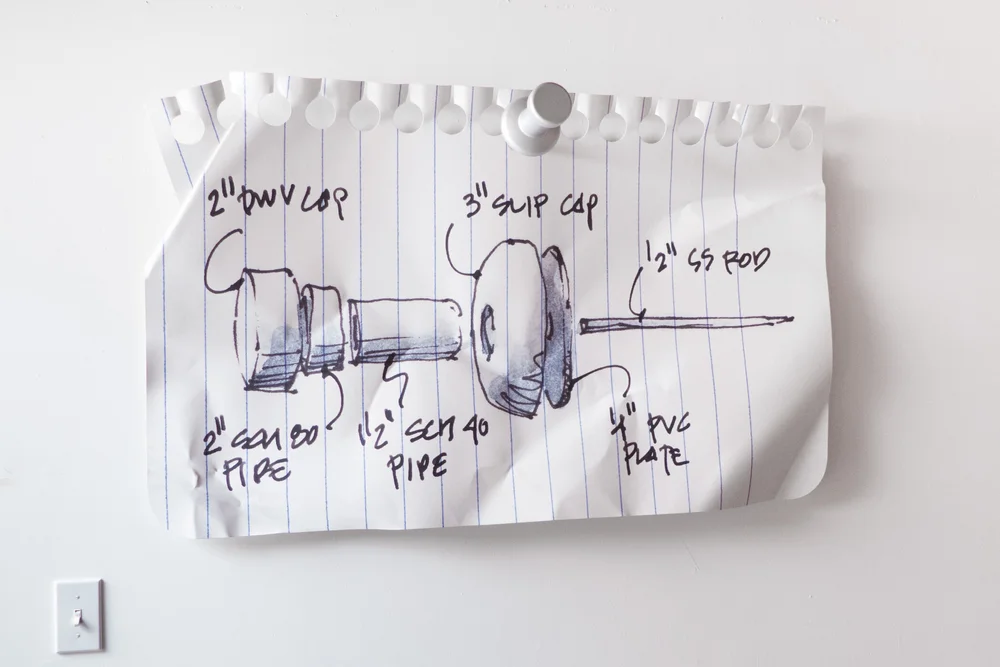 2" DWV CAP
3" SLIP CAP
1/2" SS ROD
2" SCH 80
PIPE
1/2" SCH 40
PIPE
1/4" PVC
PLATE